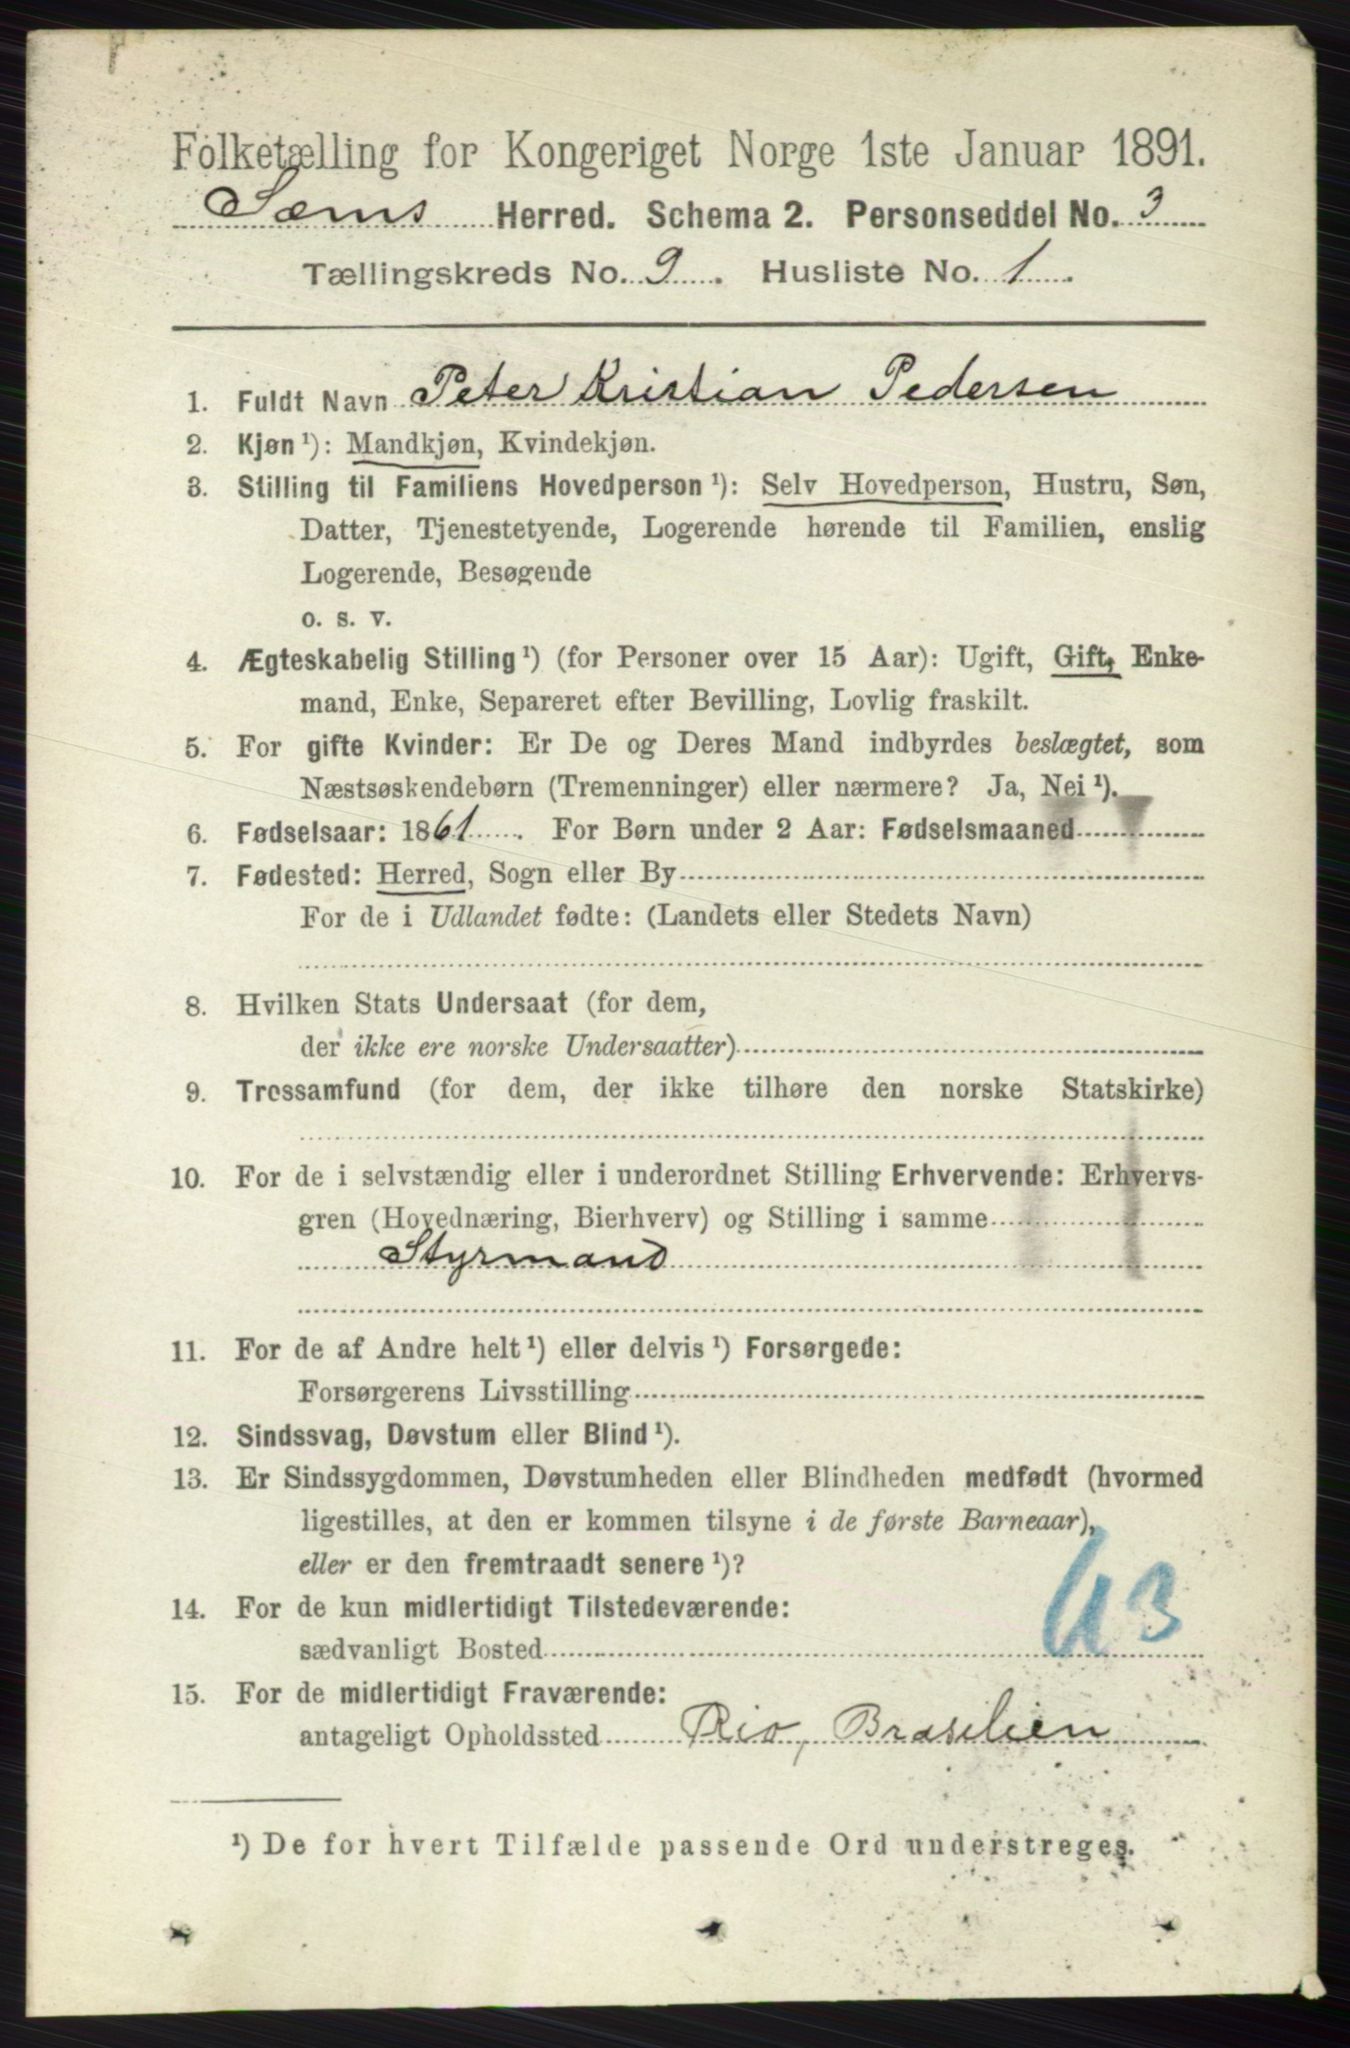 Folketælling for Kongeriget Norge 1ste Januar 1891.
Sæms Herred. Schema 2. Personseddel No. 3
Tællingskreds No. 9. Husliste No. 1.
1. Fuldt Navn Peter Kristian Pedersen
2. Kjøn ¹): Mandkjøn, Kvindekjøn.
3. Stilling til Familiens Hovedperson ¹): Selv Hovedperson, Hustru, Søn,
Datter, Tjenestetyende, Logerende hørende til Familien, enslig
Logerende, Besøgende
o. s. v.
4. Ægteskabelig Stilling ¹) (for Personer over 15 Aar): Ugift, Gift, Enke-
mand, Enke, Separeret efter Bevilling, Lovlig fraskilt.
5. For gifte Kvinder: Er De og Deres Mand indbyrdes beslægtet, som
Næstsøskendebørn (Tremenninger) eller nærmere? Ja, Nei ¹).
6. Fødselsaar: 1861. For Børn under 2 Aar: Fødselsmaaned
7. Fødested: Herred, Sogn eller By
For de i Udlandet fødte: (Landets eller Stedets Navn)
8. Hvilken Stats Undersaat (for dem,
der ikke ere norske Undersaatter)
9. Trossamfund (for dem, der ikke tilhøre den norske Statskirke)
10. For de i selvstændig eller i underordnet Stilling Erhvervende: Erhvervs-
gren (Hovednæring, Bierhverv) og Stilling i samme
Styrmand
11. For de af Andre helt ¹) eller delvis ¹) Forsørgede:
Forsørgerens Livsstilling
12. Sindssvag, Døvstum eller Blind ¹).
13. Er Sindssygdommen, Døvstumheden eller Blindheden medfødt (hvormed
ligestilles, at den er kommen tilsyne i de første Barneaar),
eller er den fremtraadt senere ¹)?
14. For de kun midlertidigt Tilstedeværende:
sædvanligt Bosted
63
15. For de midlertidigt Fraværende:
antageligt Opholdssted Rio, Brasilien
¹) De for hvert Tilfælde passende Ord understreges.